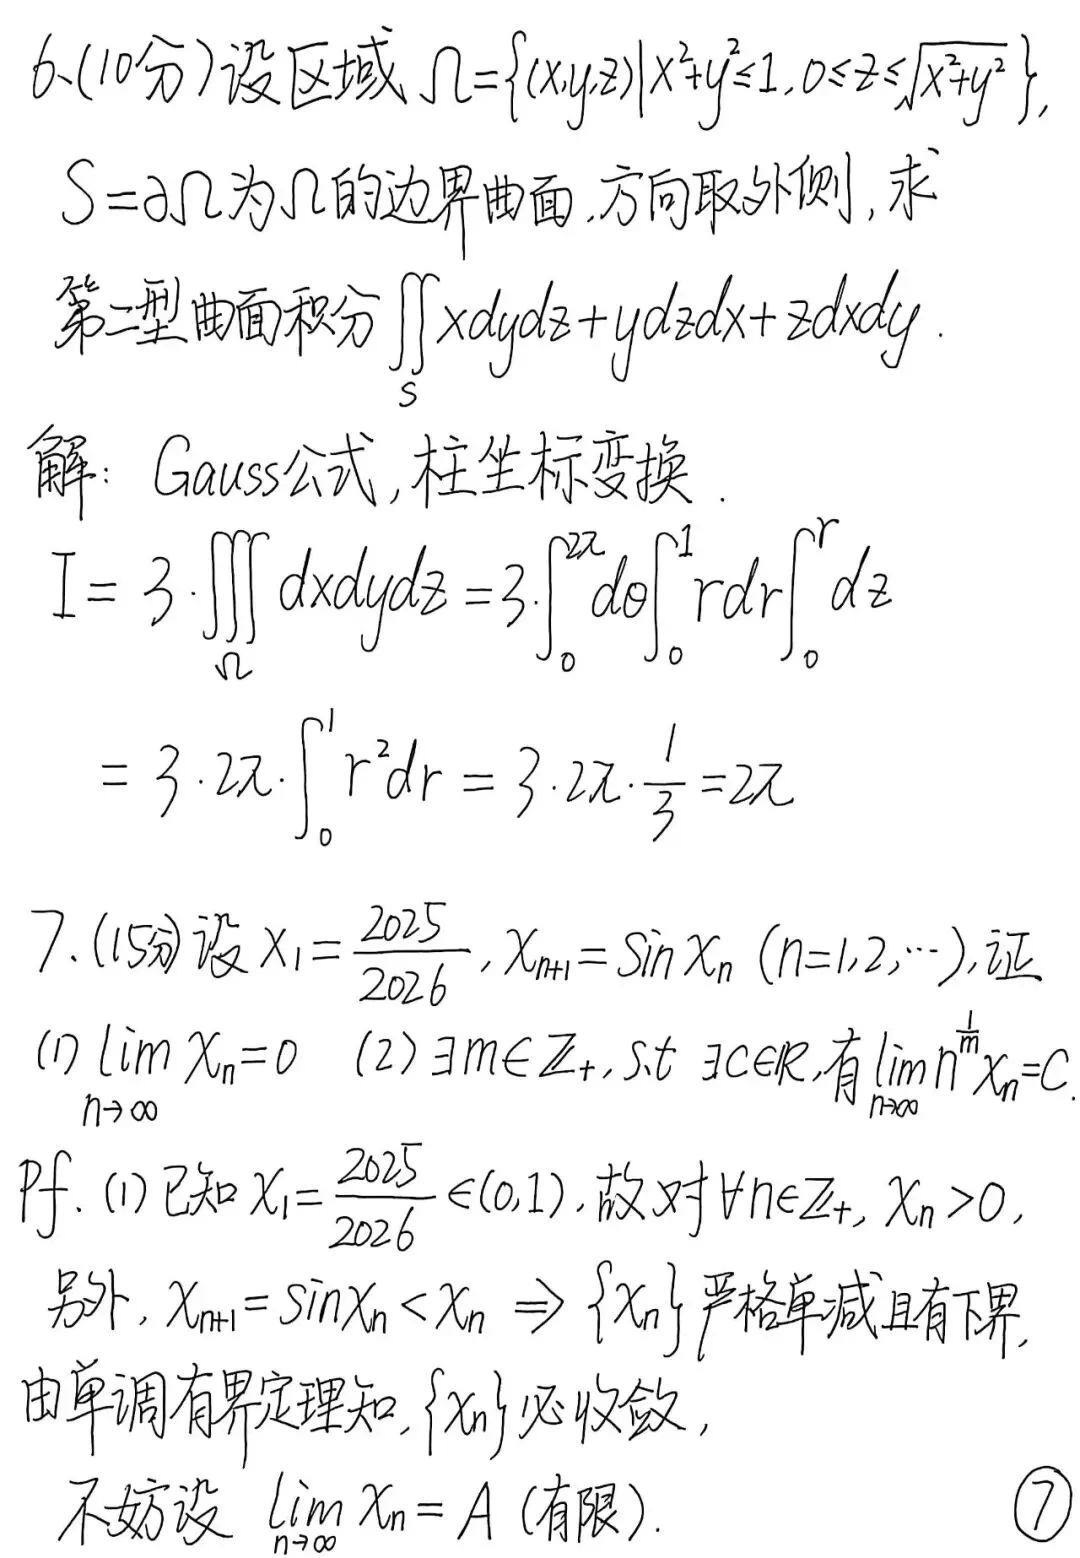 6、(10分)设区域 Ω={(x,y,z)|x²+y²≤1,0≤z≤√(x²+y²)},
S=∂Ω为Ω的边界曲面,方向取外侧,求
第二型曲面积分∬_S xdydz+ydzdx+zdxdy.
解: Gauss公式,柱坐标变换.
I=3·∭_Ω dxdydz=3·∫_0^{2π}dθ∫_0^1 rdr∫_0^r dz
=3·2π·∫_0^1 r²dr=3·2π·1/3=2π
7.(15分)设x₁=2025/2026,x_{n+1}=sin x_n (n=1,2,…),证
(1) lim_{n→∞} x_n=0 (2)∃m∈ℤ₊,s.t ∃C∈ℝ,有lim_{n→∞} n^{1/m}x_n=C.
Pf.(1)已知x₁=2025/2026∈(0,1),故对∀n∈ℤ₊, x_n>0,
另外,x_{n+1}=sinx_n<x_n ⇒{x_n}严格单减且有下界,
由单调有界定理知,{x_n}必收敛,
不妨设 lim_{n→∞} x_n=A(有限).
⑦